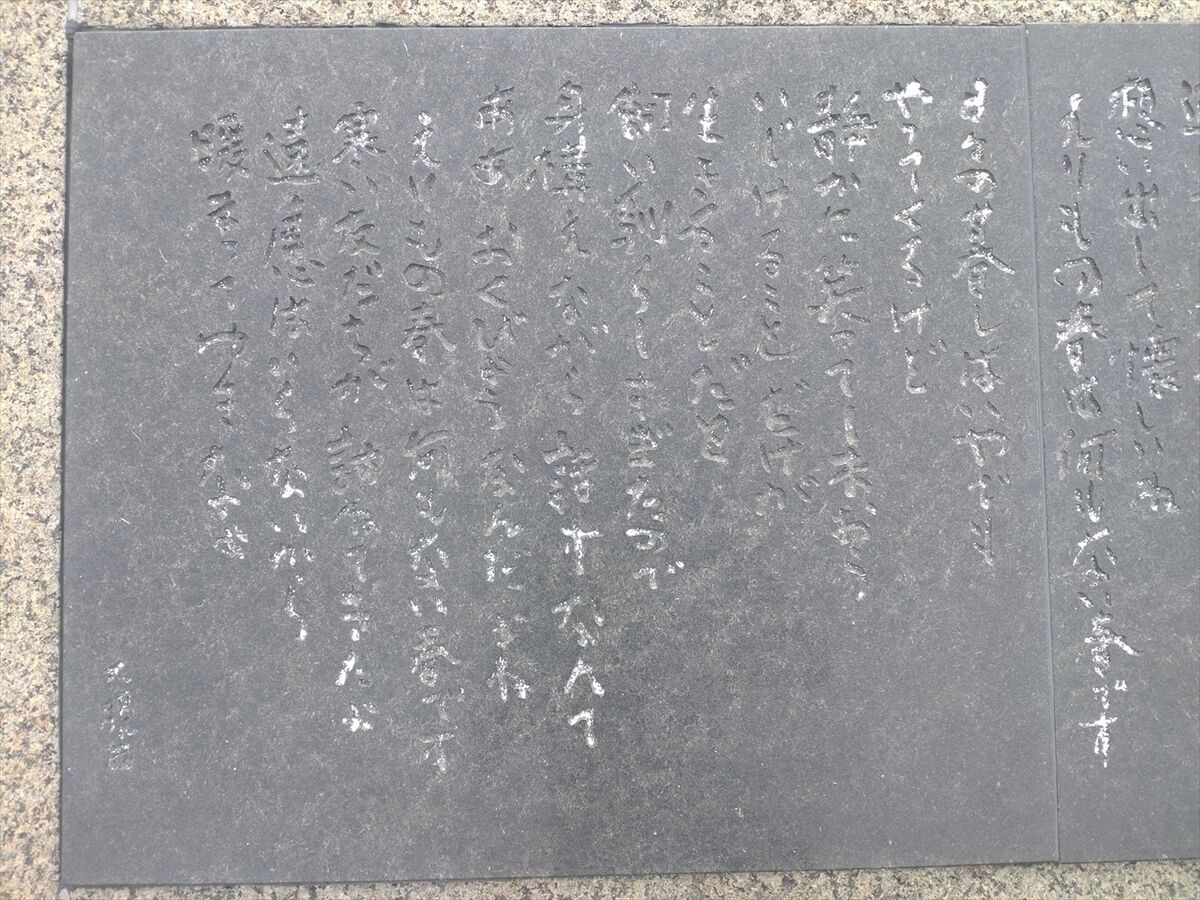 想い出して懐しいね
えりもの春は何もない春です
日々の暮しはいやでも
やってくるけど
静かに笑ってしまおう
いじけることだけが
生きることだと
飼い馴らしすぎたので
身構えながら話すなんて
ああ おくびょう なんだよね
えりもの春は何もない春です
寒い友だちが訪ねてきたよ
遠慮はいらないから
暖まってゆきなよ